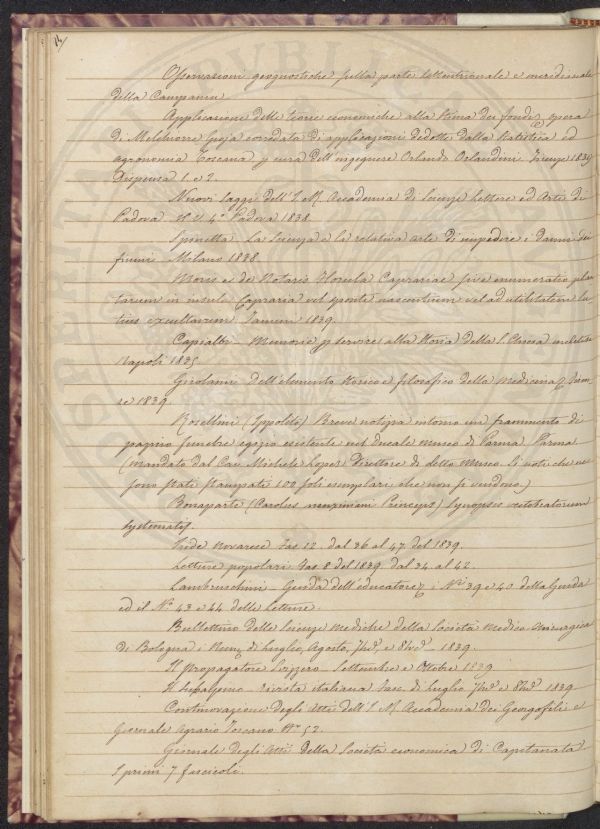 14/
Osservazioni geognostiche sulla parte settentrionale e meridionale
della Campania
Applicazione delle teorie economiche alla stima dei fondi, opera
di Melchiorre Gioja corredata di applicazioni dedotte dalla statistica ed
agronomia Toscana p cura dell'ingegnere Orlando Orlandini Firenze 1839
Dispensa 1. e 2.
Nuovi saggi dell'I. R. Accademia di Scienze Lettere ed Arti di
Padova 4.º Padova 1838.
Spinetta. La Scienza e la relativa arte di impedire i danni dei
fiumi Milano 1838
Moris et de Notaris Florula Caprariae sive enumeratio plan
tarum in insula Capraria vel sponte nascentium vel ad utilitatem la
tius excultarum Taurini 1839.
Capialbi – Memorie p servire alla storia della S. Chiesa miletese
Napoli 1835
Girolami dell'elemento storico e filosofico della medicina Firen
ze 1839.
Rosellini (Ippolito) Breve notizia intorno un frammento di
papiro funebre egizio esistente nel ducale museo di Parma. Parma
(mandato dal Cav. Michele Lopez Direttore di detto Museo. Si noti che ne
sono stati stampati 100 soli esemplari che non si vendono.)
Bonaparte (Carolus Princeps) Synopsis vertebratorum
systematis.
Iride Novarese fas 12. dal 36 al 47. del 1839.
Letture popolari fas 8 del 1839 dal 34 al 42.
Lambruschini – Guida dell'educatore, i Nⁱ 39 e 40 della Guida
ed il Nº 43 e 44 delle Letture.
Bullettino delle Scienze mediche della Società medico-chirurgica
di Bologna i Num. di Luglio, Agosto, 7bre e 8bre – 1839.
Il propagatore Svizzero – Settembre e Ottobre 1839
Il Subalpino – rivista italiana fasc. di Luglio 7bre e 8bre 1839
Continuazione degli Atti dell'I. R. Accademia dei Georgofili e
Giornale Agrario Toscano Nº 52.
Giornale degli Atti della Società economica di Capitanata
I primi 7 fascicoli.